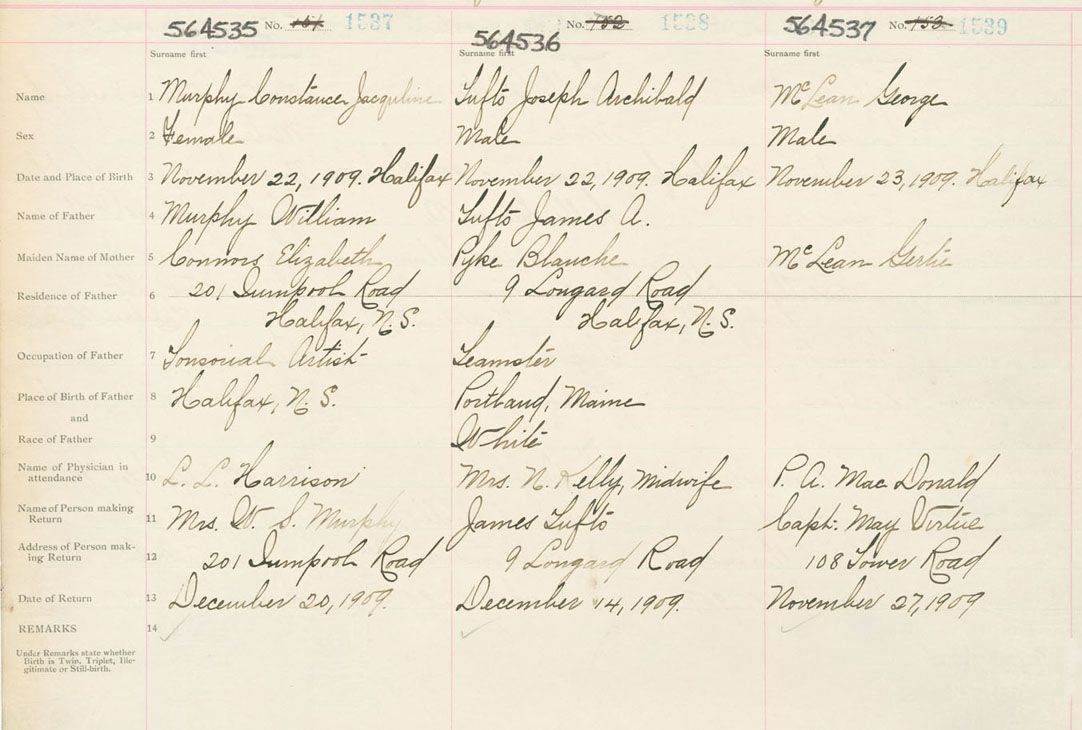 564535 No. 151 1537
564536 No. 152 1538
564537 No. 153 1539
Surname first Surname first Surname first
Name 1 Murphy Constance Jacqueline Tufts Joseph Archibald McLean George
Sex 2 Female Male Male
Date and Place of Birth 3 November 22, 1909. Halifax November 22, 1909. Halifax November 23, 1909. Halifax
Name of Father 4 Murphy William Tufts James A.
Maiden Name of Mother 5 Connors Elizabeth Pyke Blanche McLean Gertie
Residence of Father 6 201 Road 9 Longard Road
Halifax, N.S. Halifax, N.S.
Occupation of Father 7 Tonsorial Artist Teamster
Place of Birth of Father 8 Halifax, N.S. Portland, Maine
and
Race of Father 9 White
Name of Physician in
attendance 10 L. L. Harrison Mrs. N. Kelly, Midwife P. A. MacDonald
Name of Person making
Return 11 Mrs. W. S. Murphy James Tufts Capt. May Virtue
Address of Person mak-
ing Return 12 201 Road 9 Longard Road 108 Tower Road
Date of Return 13 December 20, 1909. December 14, 1909. November 27, 1909
REMARKS 14
Under Remarks state whether
Birth is Twin, Triplet, Ille-
gitimate or Still-birth.